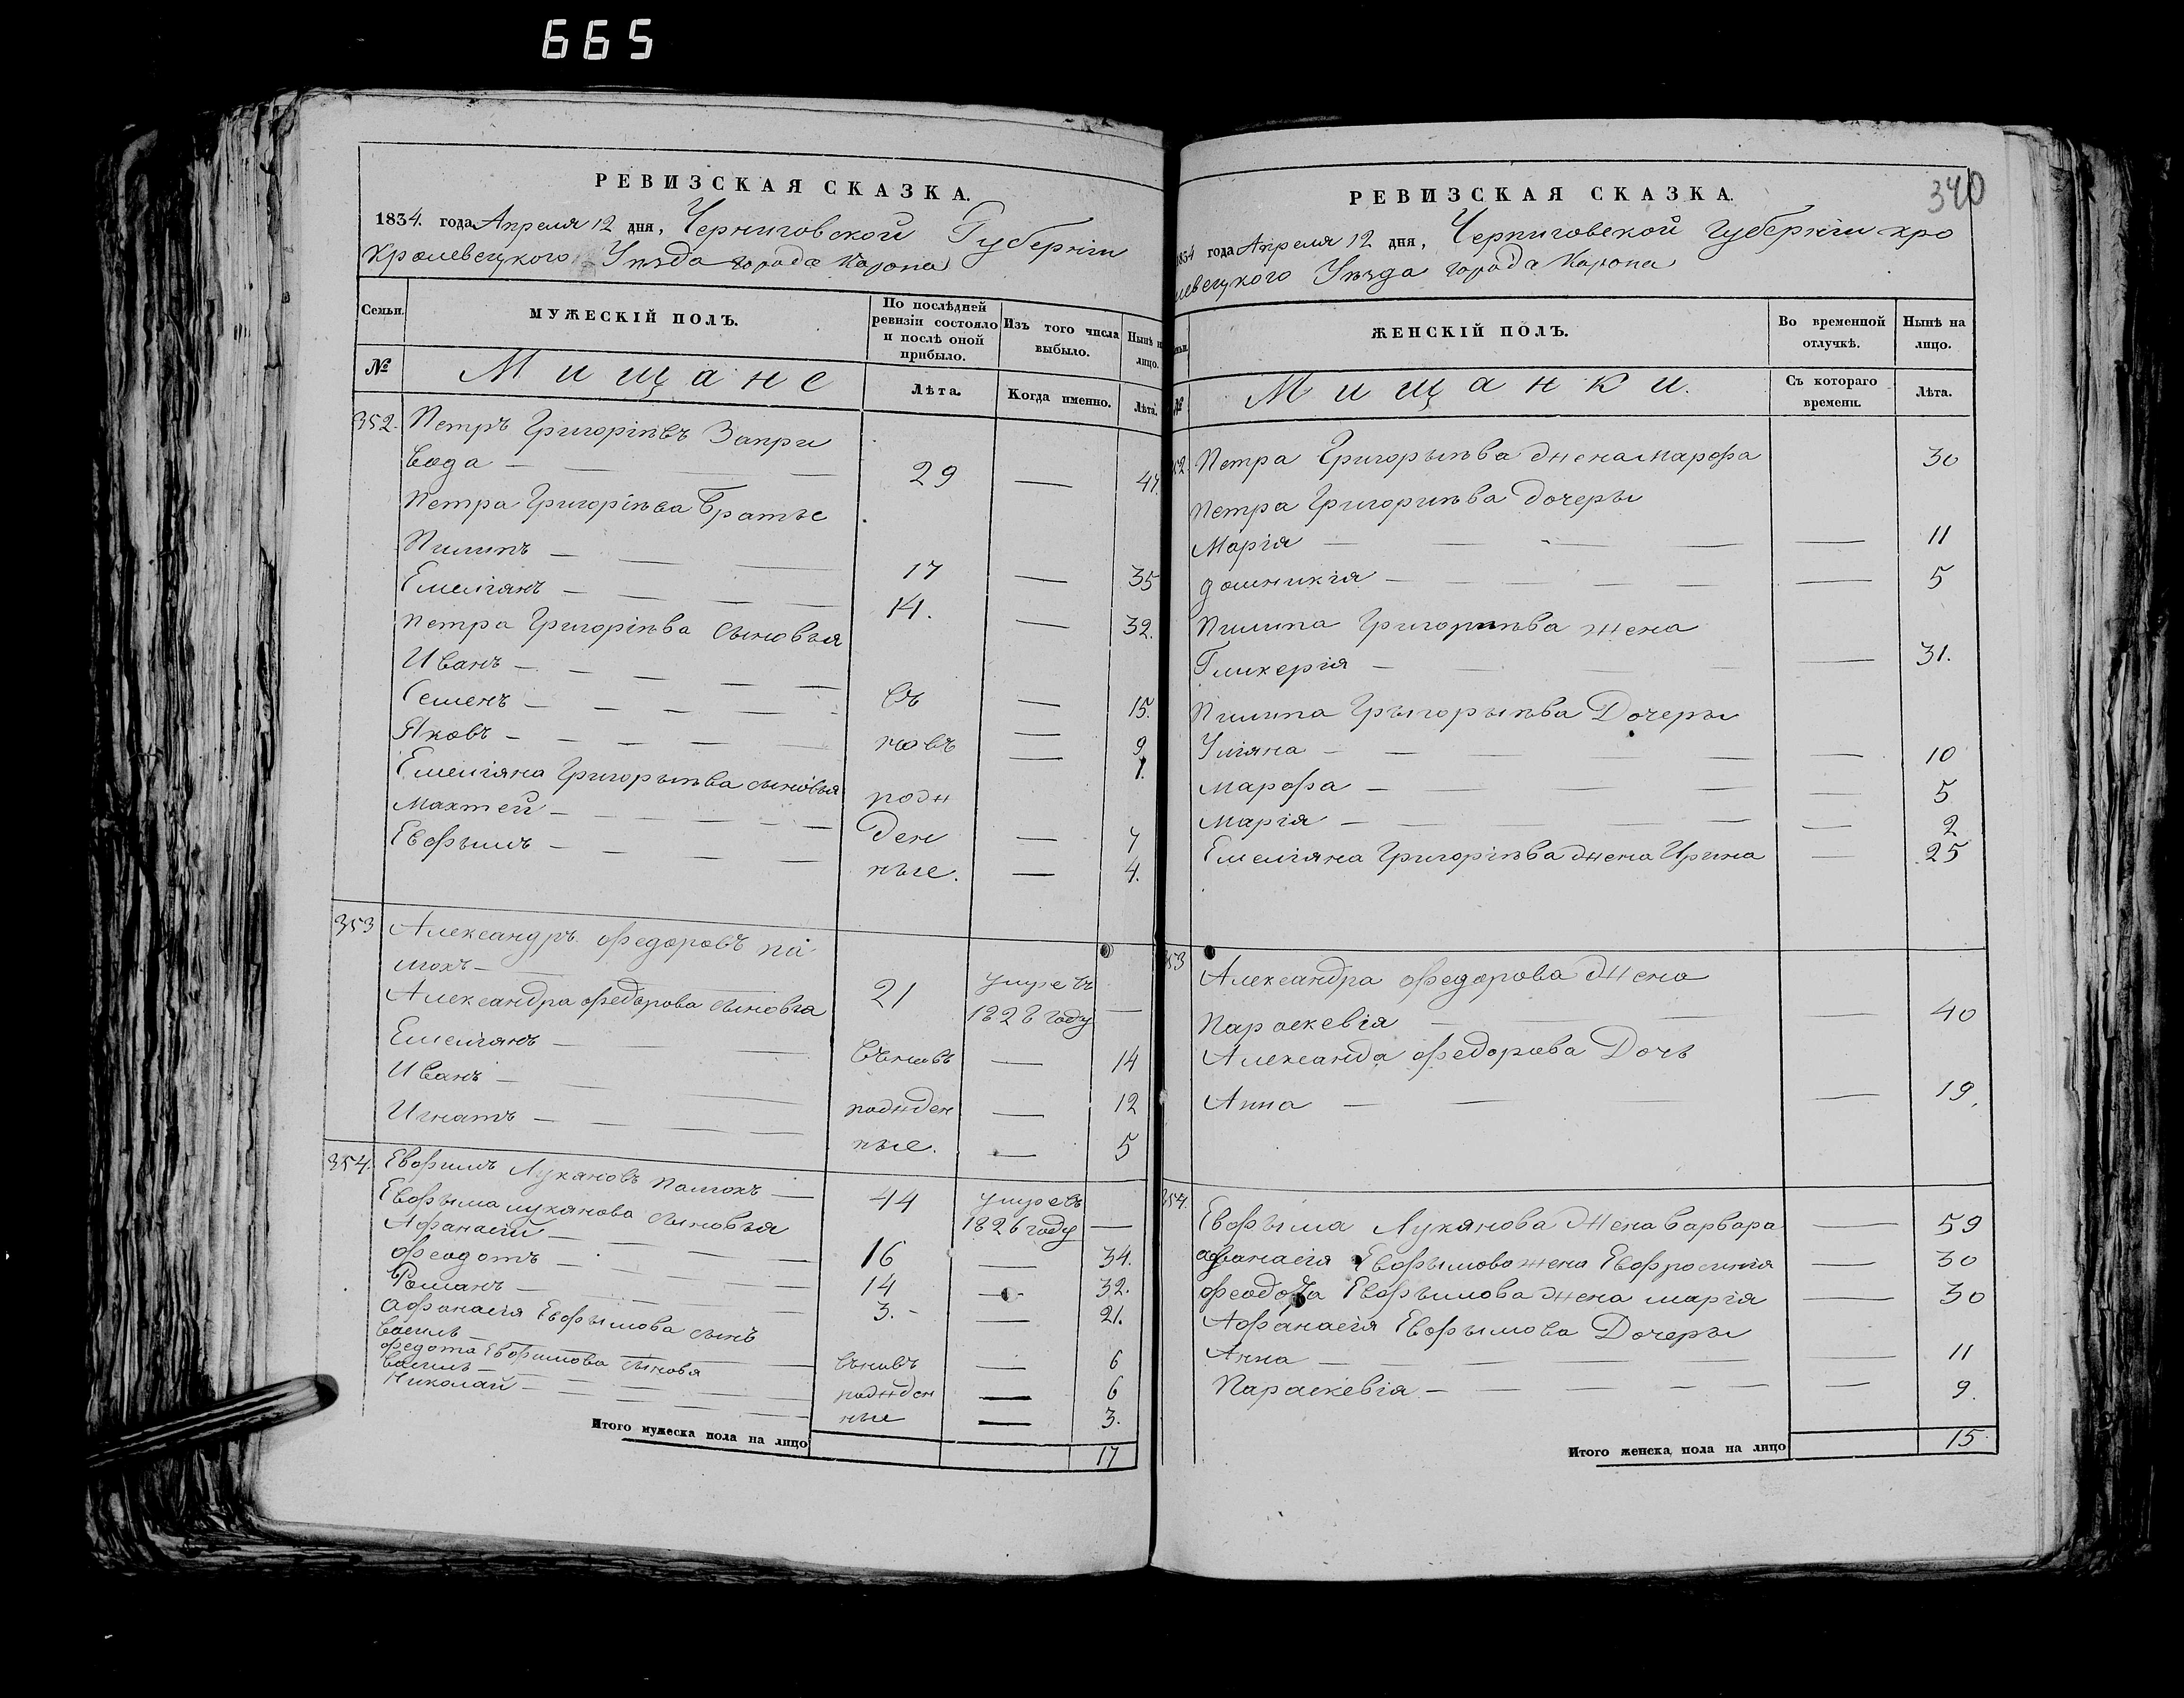 665
РЕВИЗСКАЯ СКАЗКА.
1834. года Апреля 12 дня, Черниговской Губернїи
Кролевецкого Уѣзда города Коропа
Семьи.
МУЖЕСКІЙ ПОЛЪ.
По послѣдней ревизіи состояло и послѣ оной прибыло.
Изъ того числа выбыло.
Нынѣ н лицо.
№
Мищане
Лѣта.
Когда именно.
Лѣта.
352. Петръ Григорїевъ Запри
вода — 29 — 47.
Петра Григорїева Братье
Пилипъ — 17 — 35
Емелїянъ — 14. — 32.
Петра Григорїева сыновья
Иванъ — въ — 15.
Семенъ — новъ — 9
Яковъ — — 1.
Емелїяна Григорьева сыновья рожд
Махтей — ден — 7
Евфымъ — ные. — 4.
353 Александръ Федоровъ па
мохъ — 21 умре въ 1828 году —
Александра Федорова сыновья
Емелїянъ — въновъ — 14
Иванъ — рожден — 12
Игнатъ — ные. — 5
354. Евфимъ Лукяновъ Памохъ — 44 умре въ 1826 году —
Евфыма Лукянова сыновья
Афанасїй — 16 — 34.
Феодотъ — 14 — 32.
Романъ — 3. — 21.
Афанасїя Евфымова сынъ
Василь — въновъ — 6
Федота Евфимова сыновя
Василь — рожден — 6
Николай — ные — 3.
Итого мужеска пола на лицо 17
340
РЕВИЗСКАЯ СКАЗКА.
1834 года Апреля 12 дня, Черниговской Губернїи кро
левецкого Уѣзда города Коропа
ЖЕНСКІЙ ПОЛЪ.
Во временной отлучкѣ.
Нынѣ на лицо.
№
Мищанки.
Съ котораго времени.
Лѣта.
52 Петра Григорьева жена Марфа 30
Петра Григориева дочеры
Марїя — — 11
домникїя — — 5
Пилипа Григориева жена
Гликерїя — — 31.
Пилипа Грыгорьева Дочеры
Улїяна — — 10
Марфа — — 5
Марїя — — 2
Емелїяна Григорїева жена Ирина — 25
53 Александра Федорова жена
Параскевїя — — 40
Александа Федорова Дочь
Анна — — 19.
354. Евфыма Лукянова жена Варвара — 59
Афанасїя Евфымова жена Евфросинїя — 30
Феодота Евфымова жена марїя — 30
Афанасїя Евфымова Дочеры
Анна — — 11
Параскевїя — — 9.
Итого женска пола на лицо 15